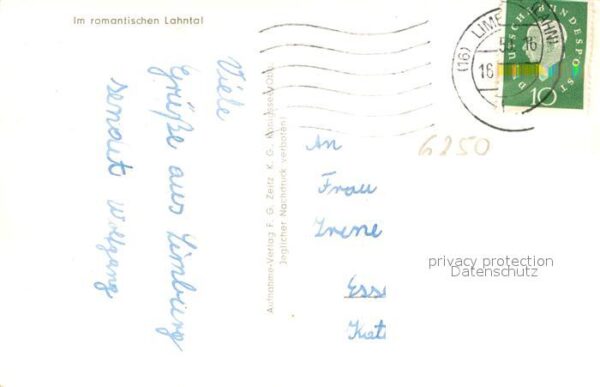 Im romantischen Lahntal
Viele
Grüße aus Limburg
sendet Wolfgang
Aufnahme-Verlag F. G. Zeitz K. G. Königssee/Obb.
Jeglicher Nachdruck verboten!
(16) LIMB (LAHN)
16
DEUTSCHE BUNDESPOST
10
6250
An
Frau
Irene
Ess
privacy protection
Datenschutz